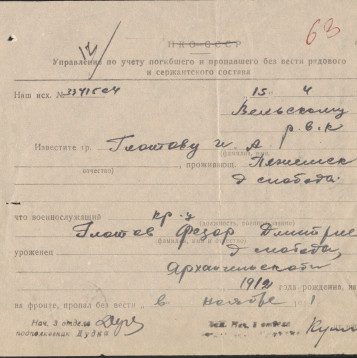 63
12/
НКО-СССР
Управление по учету погибшего и пропавшего без вести рядового
и сержантского состава
Наш исх. № 15 4
Вельскому
р.в.к
Известите гр. Глотову И. А
(фамилия, имя,
отчество) , проживающ.
д слобода.
что военнослужащий кр-ц
(должность, воинское звание)
Глотов Федор Дмитрие
(фамилия, имя и отчество)
уроженец д слобода,
Архангельской
1912 года рождения, на
на фронте, пропал без вести в ноябре 1
Нач. 3 отдела
подполковник Дудка
Нач. 2 отделения